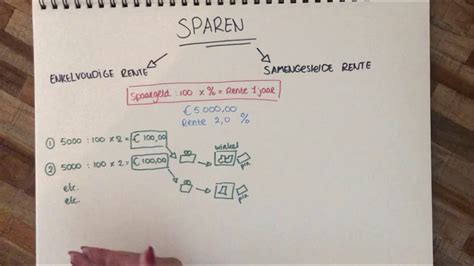 SPAREN
ENKELVOUDIGE RENTE
SAMENGESTELDE RENTE
Spaargeld : 100 x % = Rente 1 jaar
€5000,00
Rente 2,0 %
① 5000 : 100 x 2 = €100,00
winkel
pin
② 5000 : 100 x 2 = €100,00
pin
etc.
etc.